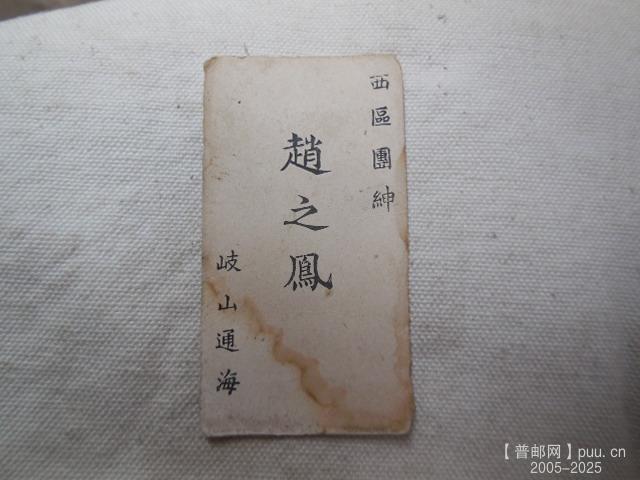 西區團紳
趙之鳳
岐山通海
【普邮网】puu.cn
2005-2025